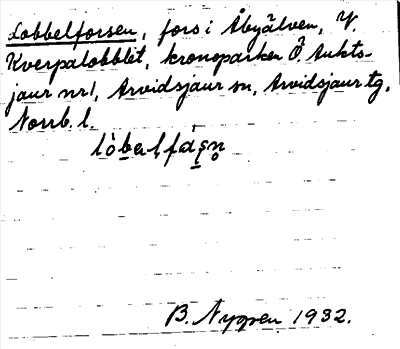 Lobbelforsen, fors i Åbyälven, V.
Kverpalobblet, kronoparken Ö. Aukts-
jaur nr 1, Arvidsjaur sn, Arvidsjaur tg,
Norrb. l.
B. Nygren 1932.